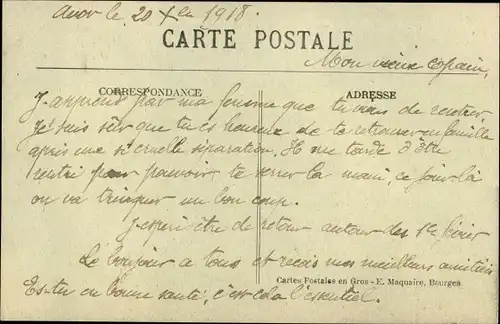 Avor le 20 Xbre 1918.
CARTE POSTALE
Mon vieux Copain,
CORRESPONDANCE
ADRESSE
J'apprend par ma femme que tu viens de rentrer,
Je suis sûr que tu es heureux de te retrouver en famille
après une si cruelle séparation. Il me tarde d'être
rentré pour pouvoir te serrer la main, ce jour-là
on va trinquer un bon coup.
J'espère être de retour autour des 1er février
Le bonjour à tous et reçois mes meilleurs amitiés
Es-tu en bonne santé, c'est cela l'essentiel.
Cartes Postales en Gros - E. Maquaire, Bourges